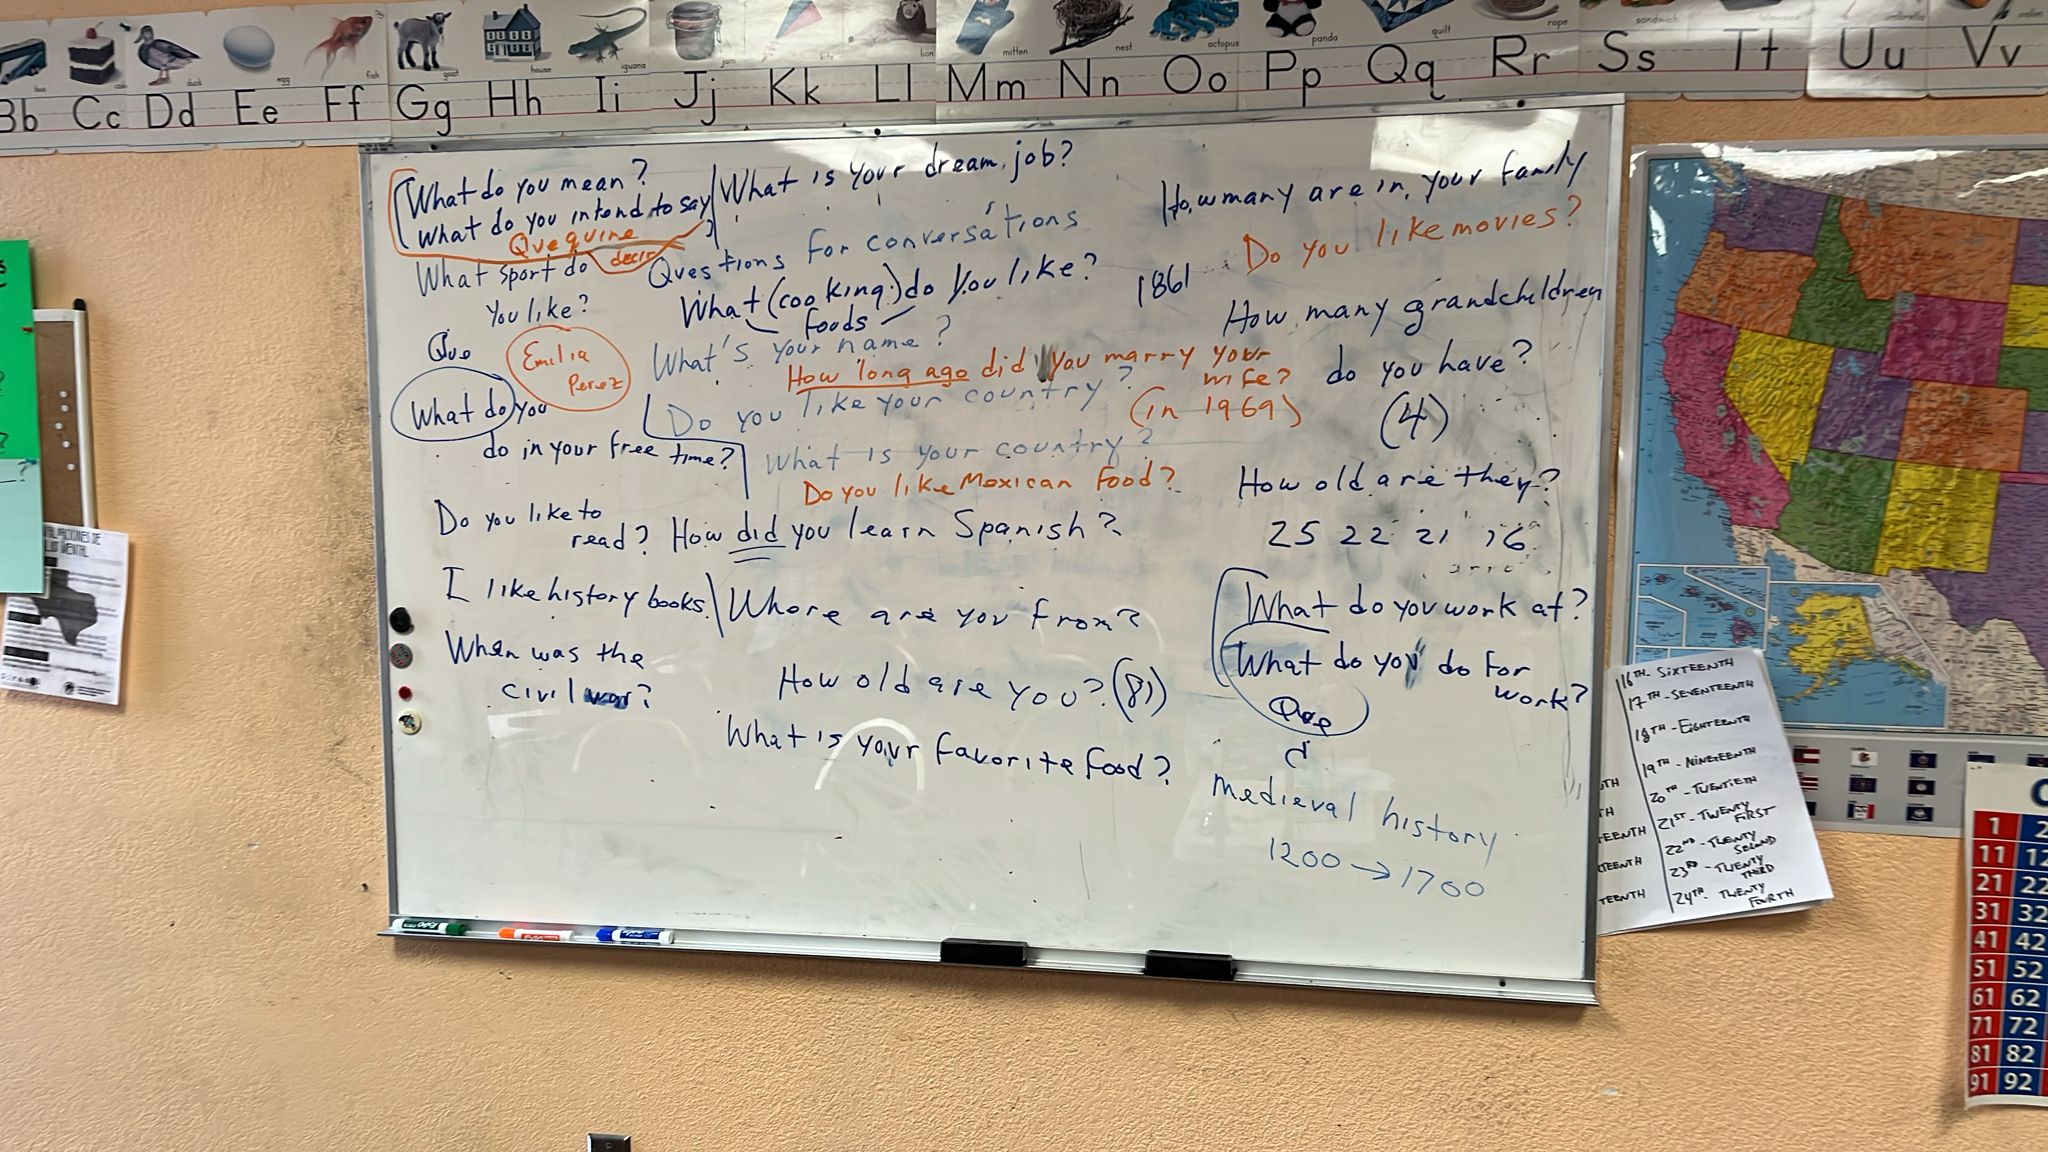 Bb Cc Dd Ee Ff Gg Hh Ii Jj Kk Ll Mm Nn Oo Pp Qq Rr Ss Tt Uu Vv
duck egg fish goat house iguana jam kite lion mitten nest octopus panda quilt rope sandwich
What do you mean?
What do you intend to say?
Que quire
decir
What is your dream job?
Questions for conversations
How many are in your family
Do you like movies?
What sport do
you like?
What (cooking) do you like?
foods
1861
How many grandchildren
do you have?
(4)
Que
Emilia
Perez
What's your name?
How long ago did you marry your
wife?
(in 1969)
What do you
do in your free time?
Do you like your country?
What is your country?
Do you like Mexican food?
How old are they?
25 22 21 16
Do you like to
read?
How did you learn Spanish?
I like history books.
Where are you from?
What do you work at?
What do you do for
work?
Que
When was the
civil war?
How old are you? (81)
What is your favorite food?
d
medieval history
1200 → 1700
EXPO
16TH - SIXTEENTH
17TH - SEVENTEENTH
18TH - EIGHTEENTH
19TH - NINETEENTH
20TH - TWENTIETH
21ST - TWENTY
FIRST
22ND - TWENTY
SECOND
23RD - TWENTY
THIRD
24TH - TWENTY
FOURTH
1 2
11 12
21 22
31 32
41 42
51 52
61 62
71 72
81 82
91 92